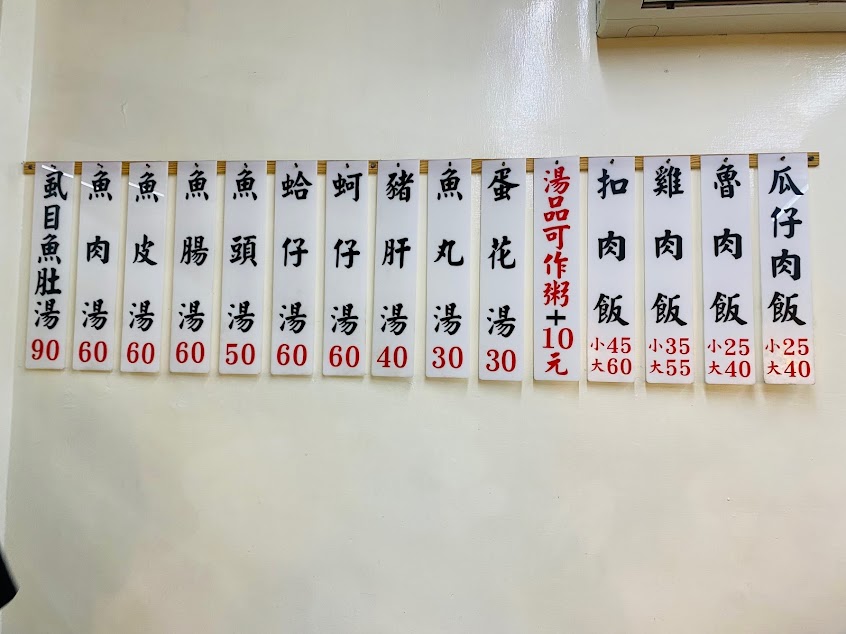 瓜仔肉飯 小25 大40
魯肉飯 小25 大40
雞肉飯 小35 大55
扣肉飯 小45 大60
湯品可作粥+10元
蛋花湯 30
魚丸湯 30
豬肝湯 40
蚵仔湯 60
蛤仔湯 60
魚頭湯 50
魚腸湯 60
魚皮湯 60
魚肉湯 60
虱目魚肚湯 90